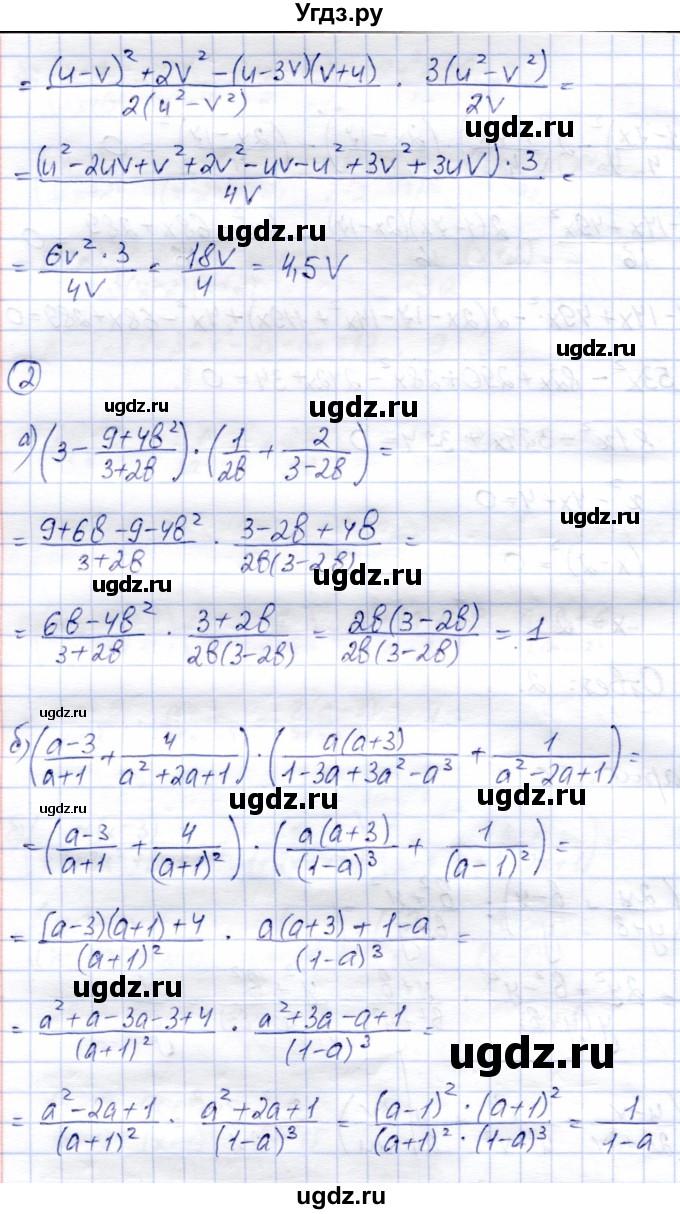 Угдз.ру
= ((u-v)² + 2v² - (u-3v)(v+u))/(2(u²-v²)) · (3(u²-v²))/(2v) =
ugdz.ru
= ((u² - 2uv + v² + 2v² - uv - u² + 3v² + 3uv) · 3)/(4v) =
ugdz.ru
= (6v² · 3)/(4v) = (18v)/4 = 4,5v
ugdz.ru
②
ugdz.ru ugdz.ru
а) (3 - (9+4b²)/(3+2b)) · (1/(2b) + 2/(3-2b)) =
ugdz.ru
= (9+6b-9-4b²)/(3+2b) · (3-2b+4b)/(2b(3-2b)) =
ugdz.ru ugdz.ru
= (6b-4b²)/(3+2b) · (3+2b)/(2b(3-2b)) = (2b(3-2b))/(2b(3-2b)) = 1
ugdz.ru
б) ((a-3)/(a+1) + 4/(a²+2a+1)) · ((a(a+3))/(1-3a+3a²-a³) + 1/(a²-2a+1)) =
ugdz.ru ugdz.ru
ugdz.ru
= ((a-3)/(a+1) + 4/(a+1)²) · ((a(a+3))/(1-a)³ + 1/(a-1)²) =
= ((a-3)(a+1)+4)/(a+1)² · (a(a+3)+1-a)/(1-a)³ =
ugdz.ru
= (a²+a-3a-3+4)/(a+1)² · (a²+3a-a+1)/(1-a)³ =
ugdz.ru
= (a²-2a+1)/(a+1)² · (a²+2a+1)/(1-a)³ = ((a-1)² · (a+1)²)/((a+1)² · (1-a)³) = 1/(1-a)
ugdz.ru